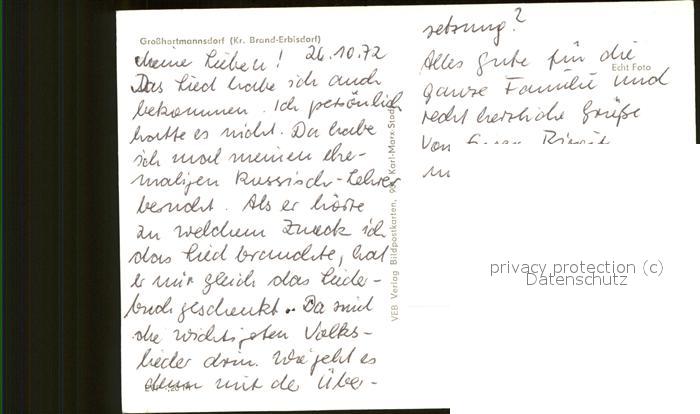 Großhartmannsdorf (Kr. Brand-Erbisdorf)
Meine Lieben! 26.10.72
Das Lied habe ich auch
bekommen. Ich persönlich
hatte es nicht. Da habe
ich mal meinen ehe-
maligen Russisch-Lehrer
besucht. Als er hörte
zu welchem Zweck ich
das Lied brauchte, hat
er mir gleich das Lieder-
buch geschenkt. Da sind
die wichtigsten Volks-
lieder drin. Wie geht es
denn mit der Über-
VEB Verlag Bildpostkarten, Karl-Marx-Stadt
setzung?
Alles Gute für die
Echt Foto
ganze Familie und
recht herzliche Grüße
von
privacy protection (c)
Datenschutz